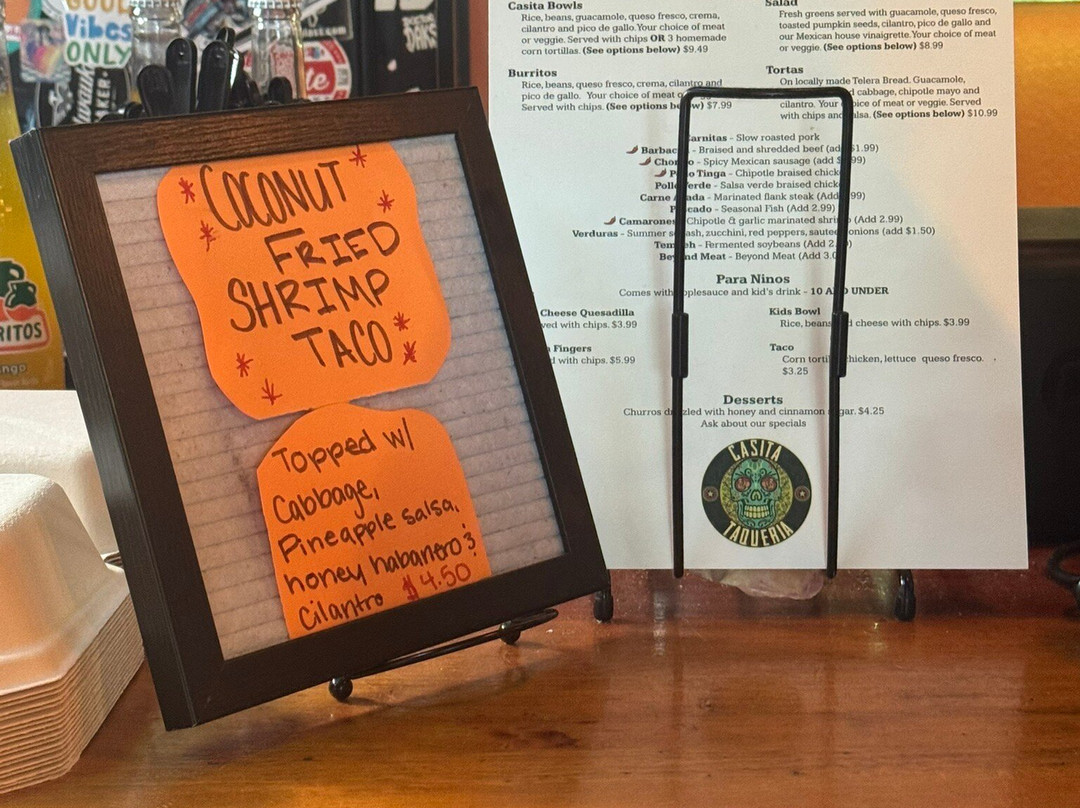 GOOD
Vibes
ONLY
COCONUT
FRIED
SHRIMP
TACO
Topped w/
Cabbage,
Pineapple salsa,
honey habanero &
Cilantro $4.50
Casita Bowls
Rice, beans, guacamole, queso fresco, crema,
cilantro and pico de gallo. Your choice of meat
or veggie. Served with chips OR 3 homemade
corn tortillas. (See options below) $9.49
Salad
Fresh greens served with guacamole, queso fresco,
toasted pumpkin seeds, cilantro, pico de gallo and
our Mexican house vinaigrette. Your choice of meat
or veggie. (See options below) $8.99
Burritos
Rice, beans, queso fresco, crema, cilantro and
pico de gallo. Your choice of meat
Served with chips. (See options below) $7.99
Tortas
On locally made Telera Bread. Guacamole,
cabbage, chipotle mayo and
cilantro. Your choice of meat or veggie. Served
with chips and salsa. (See options below) $10.99
Carnitas - Slow roasted pork
Barbacoa - Braised and shredded beef (add $1.99)
Chorizo - Spicy Mexican sausage (add $ 99)
Pollo Tinga - Chipotle braised chicken
Pollo Verde - Salsa verde braised chicken
Carne Asada - Marinated flank steak (Add 99)
Pescado - Seasonal Fish (Add 2.99)
Camarones - Chipotle & garlic marinated shrimp (Add 2.99)
Verduras - Summer squash, zucchini, red peppers, sauteed onions (add $1.50)
Tempeh - Fermented soybeans (Add 2. )
Beyond Meat - Beyond Meat (Add 3.0 )
Para Ninos
Comes with applesauce and kid's drink - 10 AND UNDER
Cheese Quesadilla
ved with chips. $3.99
Kids Bowl
Rice, beans and cheese with chips. $3.99
Fingers
d with chips. $5.99
Taco
Corn tortilla, chicken, lettuce queso fresco.
$3.25
Desserts
Churros drizzled with honey and cinnamon sugar. $4.25
Ask about our specials
CASITA
TAQUERIA
RITOS